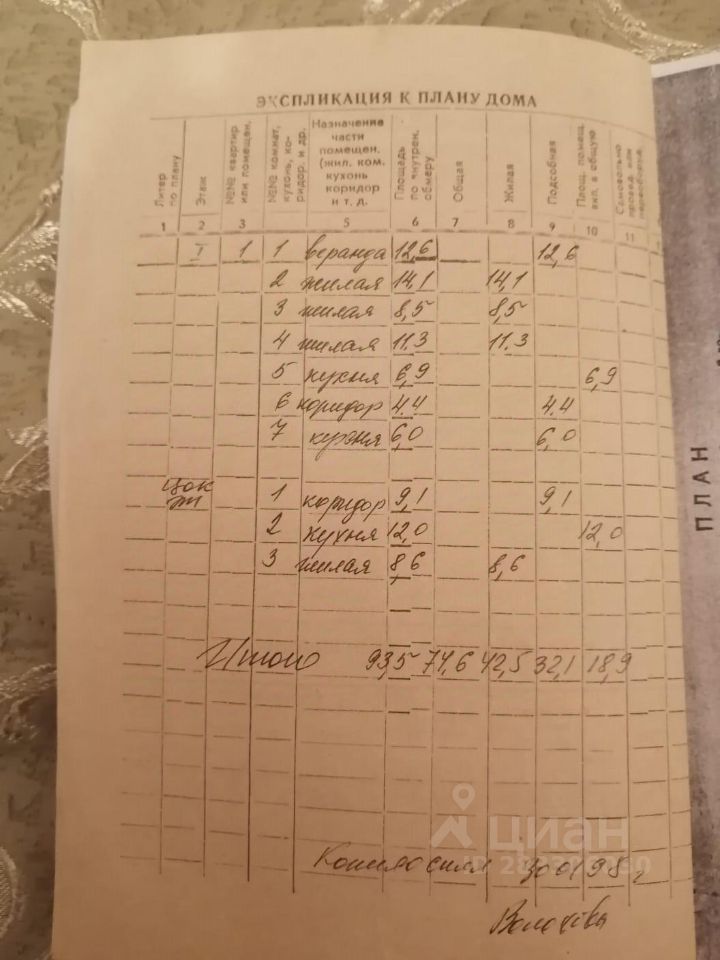 ЭКСПЛИКАЦИЯ К ПЛАНУ ДОМА
Литер по плану
Этаж
№№ квартир или помещен.
№№ комнат, кухонь, коридор. и др.
Назначение части помещен. (жил. ком. кухонь коридор и т. д.
Площадь по внутрен. обмеру
Общая
Жилая
Подсобная
Площ. помещ. вкл. в общую
Самовольно
1 2 3 4 5 6 7 8 9 10 11
I 1 1 веранда 12,6 12,6
2 жилая 14,1 14,1
3 жилая 8,5 8,5
4 жилая 11.3 11.3
5 кухня 6,9 6,9
6 коридор 4.4 4.4
7 кухня 6,0 6,0
цок эт 1 коридор 9,1 9,1
2 кухня 12,0 12,0
3 жилая 8,6 8,6
Итого 93,5 74,6 42,5 32,1 18,9
циан
Копию снял 30 01 98 г
ПЛАН